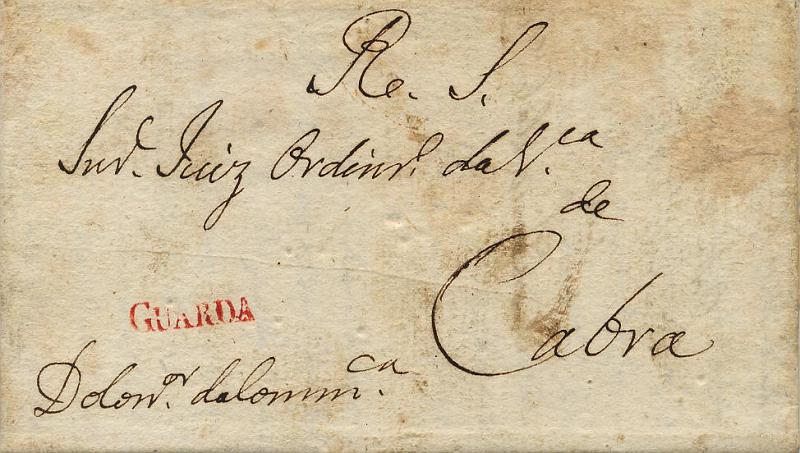 Re. S.
Snr. Juiz Ordinr.º da V.ca
de
Cabra
GUARDA
Do Corr.or da Comm.ca